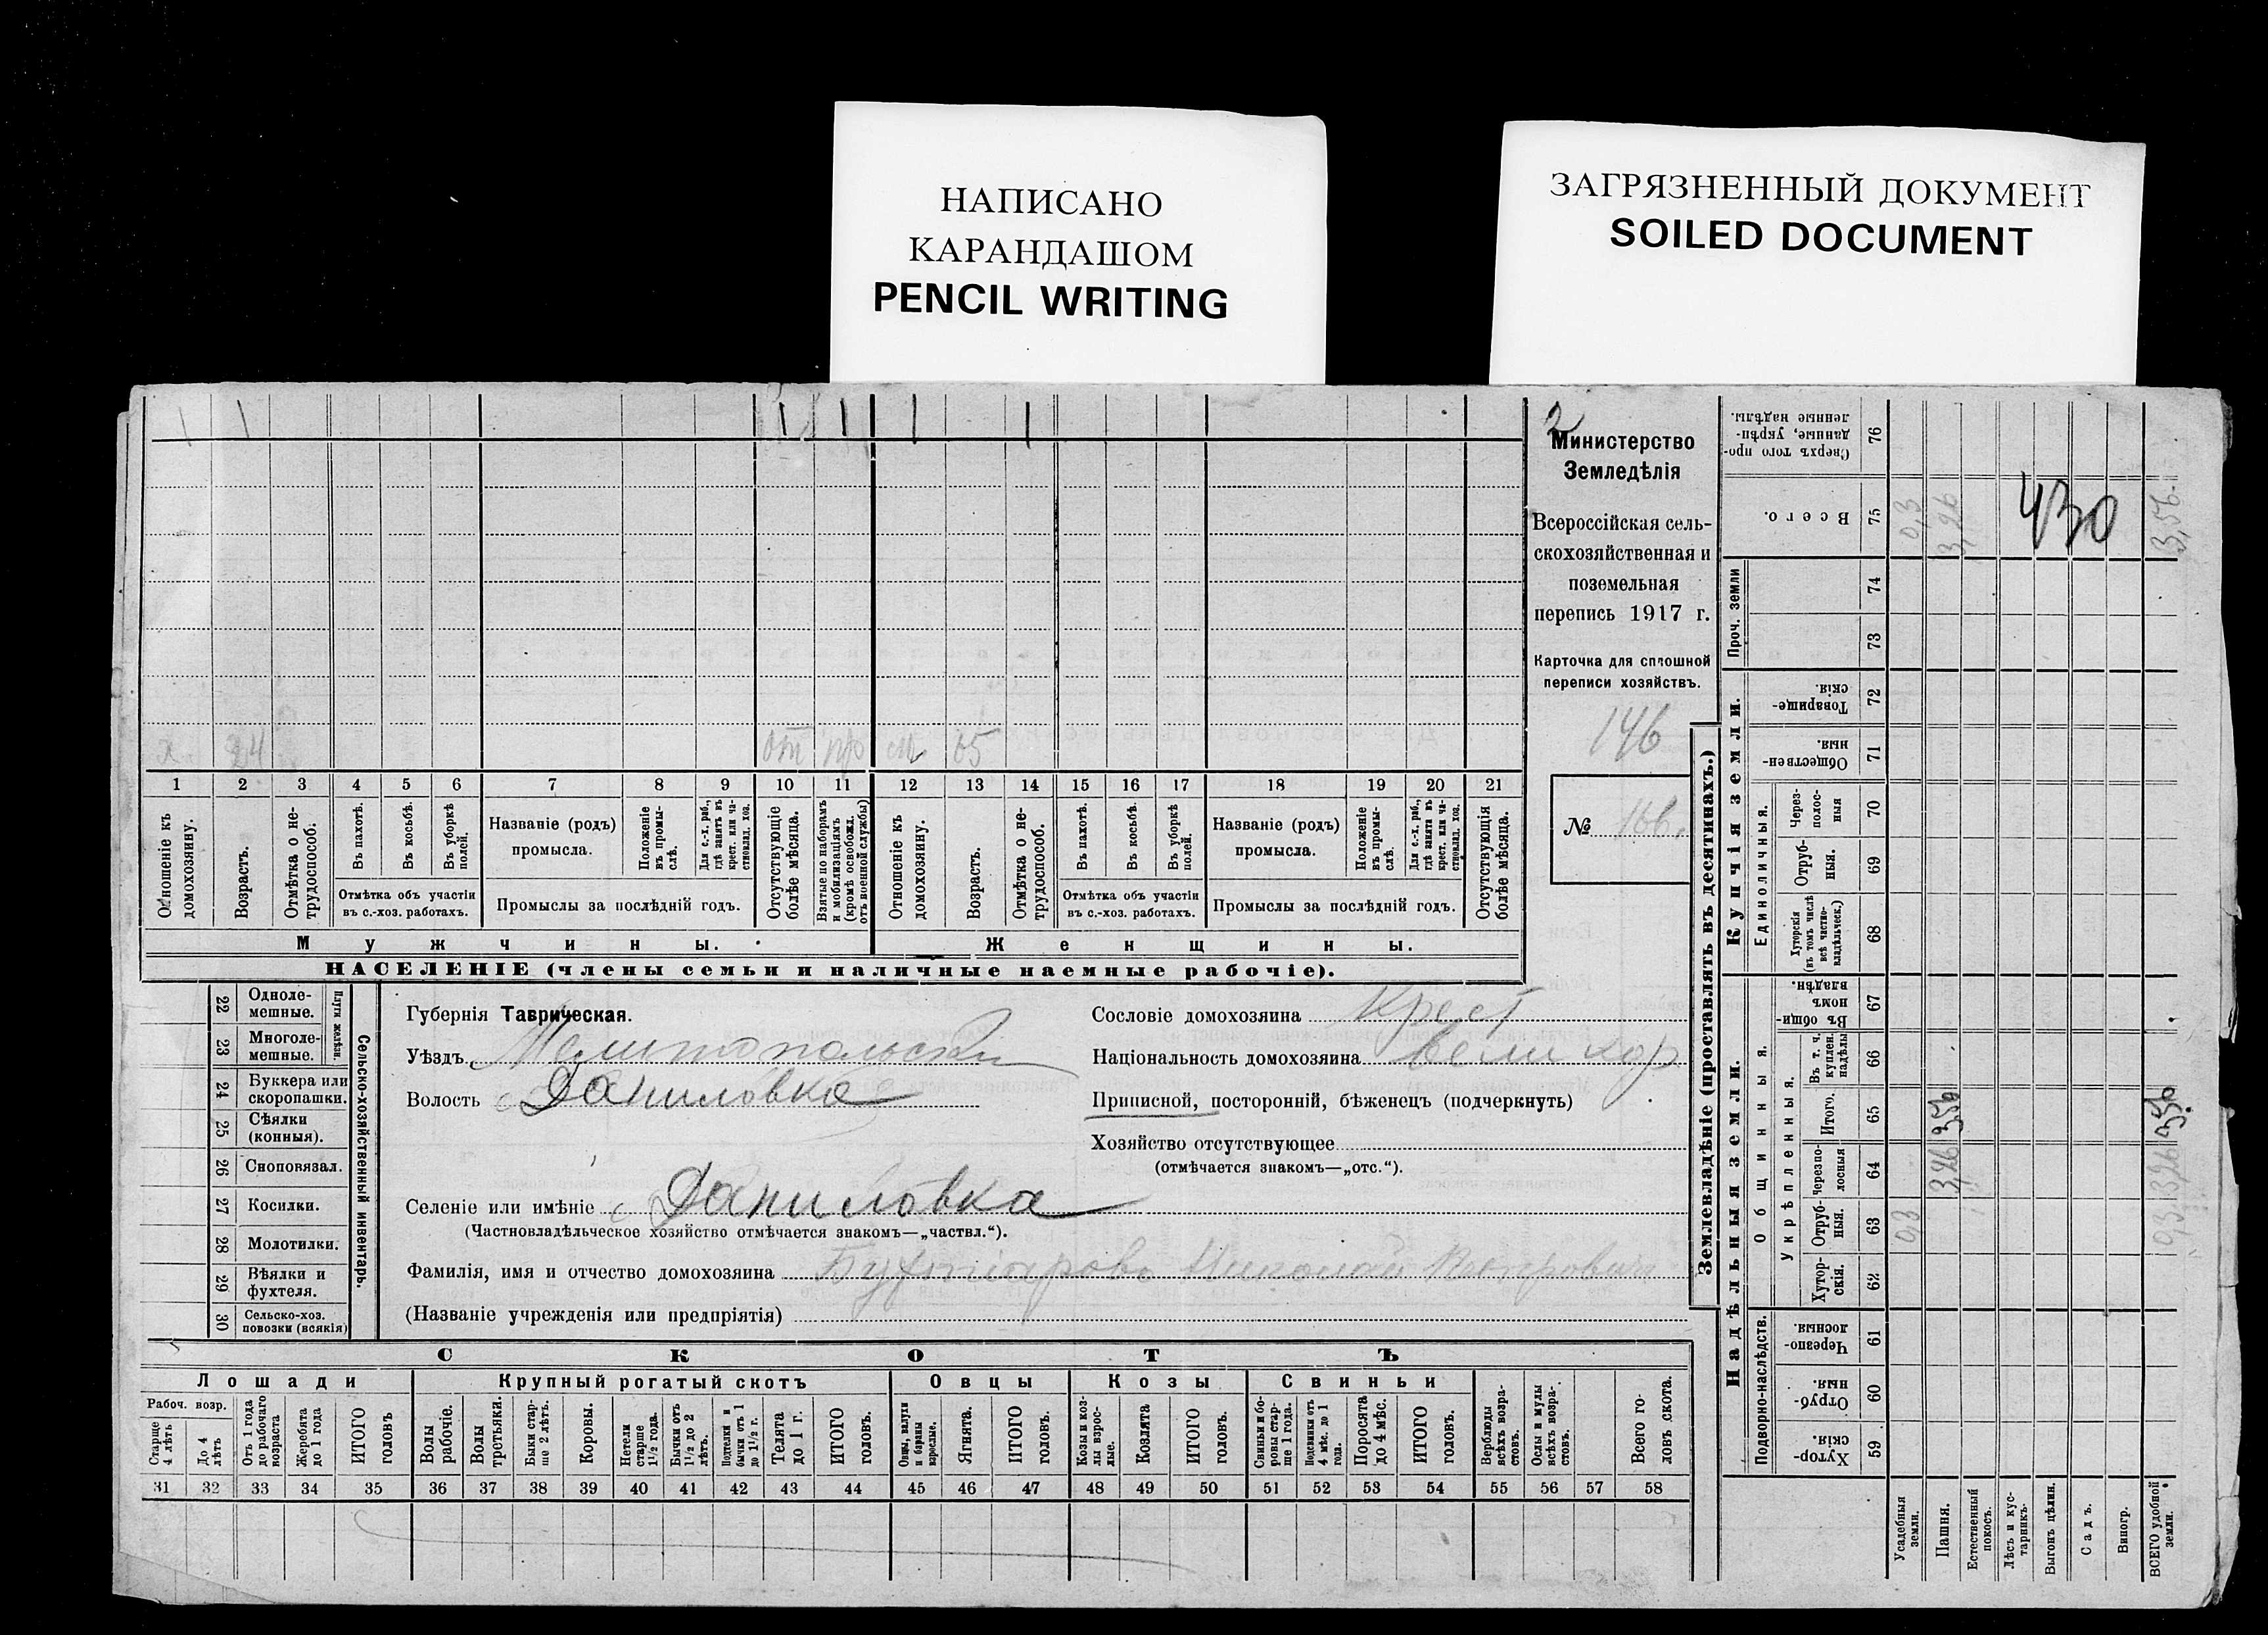 НАПИСАНО
КАРАНДАШОМ
PENCIL WRITING
ЗАГРЯЗНЕННЫЙ ДОКУМЕНТ
SOILED DOCUMENT
2
Министерство
Земледѣлія
Всероссійская сель-
скохозяйственная и
поземельная
перепись 1917 г.
Карточка для сплошной
переписи хозяйствъ.
146
№
24
1 2 3 4 5 6 7 8 9 10 11 12 13 14 15 16 17 18 19 20 21
Отношеніе къ домохозяину.
Возрастъ.
Отмѣтка о не-трудоспособ.
Въ пахотѣ.
Въ косьбѣ.
Въ уборкѣ полей.
Отмѣтка объ участіи
въ с.-хоз. работахъ.
Названіе (родъ)
промысла.
Положеніе въ промы-слѣ.
Для с.-х. раб., гдѣ занятъ въ крест. или ча-стновлад. хоз.
Промыслы за послѣдній годъ.
Отсутствующіе болѣе мѣсяца.
Взятые по наборамъ и мобилизаціямъ (кромѣ освобожд. отъ военной службы)
Отношеніе къ домохозяину.
Возрастъ.
Отмѣтка о не-трудоспособ.
Въ пахотѣ.
Въ косьбѣ.
Въ уборкѣ полей.
Отмѣтка объ участіи
въ с.-хоз. работахъ.
Названіе (родъ)
промысла.
Положеніе въ промы-слѣ.
Для с.-х. раб., гдѣ заняты въ крест. или ча-стновлад. хоз.
Промыслы за послѣдній годъ.
Отсутствующія болѣе мѣсяца.
Мужчины.
Женщины.
НАСЕЛЕНІЕ (члены семьи и наличные наемные рабочіе).
Сельско-хозяйственный инвентарь.
Плуги желѣзн.
22 Одноле-мешные.
23 Многоле-мешные.
24 Буккера или скоропашки.
25 Сѣялки (конныя).
26 Сноповязал.
27 Косилки.
28 Молотилки.
29 Вѣялки и фухтеля.
30 Сельско-хоз. повозки (всякія)
Губернія Таврическая.
Уѣздъ Мелитопольскій
Волость Даниловка
Сословіе домохозяина Крест
Національность домохозяина
Приписной, посторонній, бѣженецъ (подчеркнуть)
Хозяйство отсутствующее
(отмѣчается знакомъ—„отс.“).
Селеніе или имѣніе с Даниловка
(Частновладѣльческое хозяйство отмѣчается знакомъ—„частвл.“).
Фамилія, имя и отчество домохозяина Николай Петрович
(Названіе учрежденія или предпріятія)
СКОТЪ
Лошади
Крупный рогатый скотъ
Овцы
Козы
Свиньи
Рабоч. возр.
Старше 4 лѣтъ
До 4 лѣтъ
Отъ 1 года до рабочаго возраста
Жеребята до 1 года
ИТОГО головъ
Волы рабочіе.
Волы третьяки.
Быки стар-ше 2 лѣтъ.
Коровы.
Нетели старше 1½ года.
Бычки отъ 1½ до 2 лѣтъ.
Подтелки и бычки отъ 1 до 1½ г.
Телята до 1 г.
ИТОГО головъ.
Овцы, валухи и бараны взрослые.
Ягнята.
ИТОГО головъ.
Козы и коз-лы взрос-лые.
Козлята
ИТОГО головъ.
Свиньи и бо-ровы стар-ше 1 года.
Подсвинки отъ 4 мѣс. до 1 года.
Поросята до 4 мѣс.
ИТОГО головъ.
Верблюды всѣхъ возра-стовъ.
Ослы и мулы всѣхъ возра-стовъ.
Всего го-ловъ скота.
31 32 33 34 35 36 37 38 39 40 41 42 43 44 45 46 47 48 49 50 51 52 53 54 55 56 57 58
Землевладѣніе (проставлять въ десятинахъ.)
Надѣльныя земли.
Купчія земли.
Проч. земли
Подворно-наслѣдств.
Общинныя.
Укрѣпленныя.
Единоличныя.
Сверхъ того про-данные, укрѣп-ленные надѣлы. 76
Всего. 75
74
73
Товарище-скія. 72
Обществен-ныя. 71
Через-полос-ныя 70
Отруб-ныя. 69
Хуторскія (въ томъ числѣ всѣ частно-владѣльческ.) 68
Въ общин-номъ владѣн. 67
Въ т. ч. куплен. надѣлы 66
Итого. 65
Черезпо-лосныя 64
Отруб-ныя. 63
Хутор-скія. 62
Черезпо-лосныя. 61
Отруб-ныя. 60
Хутор-скія. 59
0,3
3,26
430
3,56
356
3,26
0,3
356
3,26
0,3
Усадебныя земли.
Пашня.
Естественный покосъ.
Лѣсъ и кус-тарникъ.
Выгонъ цѣлин.
Садъ.
Виногр.
ВСЕГО удобной земли.